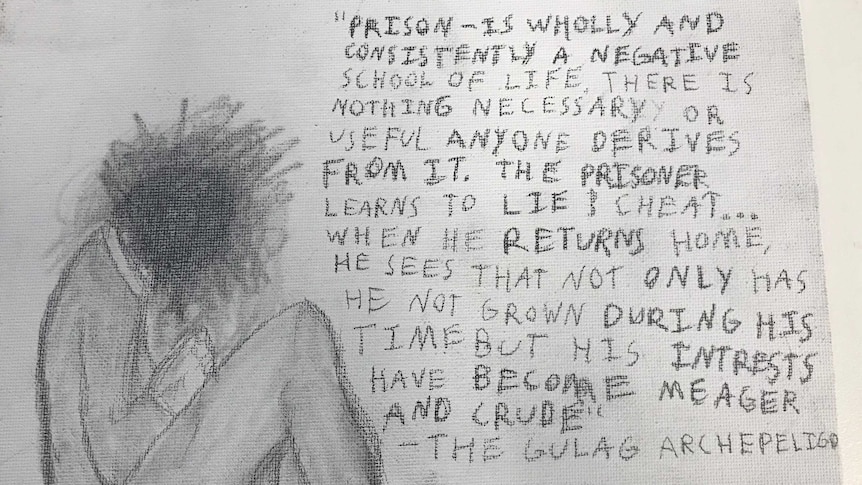 "PRISON-IS WHOLLY AND
CONSISTENTLY A NEGATIVE
SCHOOL OF LIFE, THERE IS
NOTHING NECESSARY OR
USEFUL ANYONE DERIVES
FROM IT. THE PRISONER
LEARNS TO LIE & CHEAT...
WHEN HE RETURNS HOME,
HE SEES THAT NOT ONLY HAS
HE NOT GROWN DURING HIS
TIME BUT HIS INTRESTS
HAVE BECOME MEAGER
AND CRUDE"
-THE GULAG ARCHEPELIGO